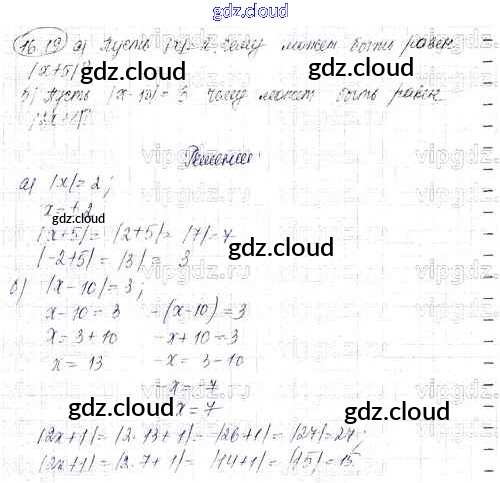 gdz.cloud
16.19 а) Пусть |x|=2 чему может быть равен
|x+5|?
б) Пусть |x-10|=3 чему может быть равен
|2x+1|?
Решение:
а) |x|=2;
x=±2
|x+5|=|2+5|=|7|=7
|-2+5|=|3|=3
б) |x-10|=3;
x-10=3 -(x-10)=3
x=3+10 -x+10=3
x=13 -x=3-10
-x=-7
x=7
|2x+1|=|2·13+1|=|26+1|=|27|=27;
|2x+1|=|2·7+1|=|14+1|=|15|=15.
gdz.cloud
gdz.cloud
gdz.cloud
gdz.cloud
gdz.cloud
gdz.cloud
gdz.cloud
vipgdz.ru